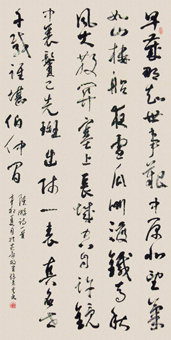 早歲那知世事艱中原北望氣
如山樓船夜雪瓜洲渡鐵馬秋
風大散關塞上長城空自許鏡
中衰鬢已先斑出師一表真名世
千載誰堪伯仲間
陸游詩一首